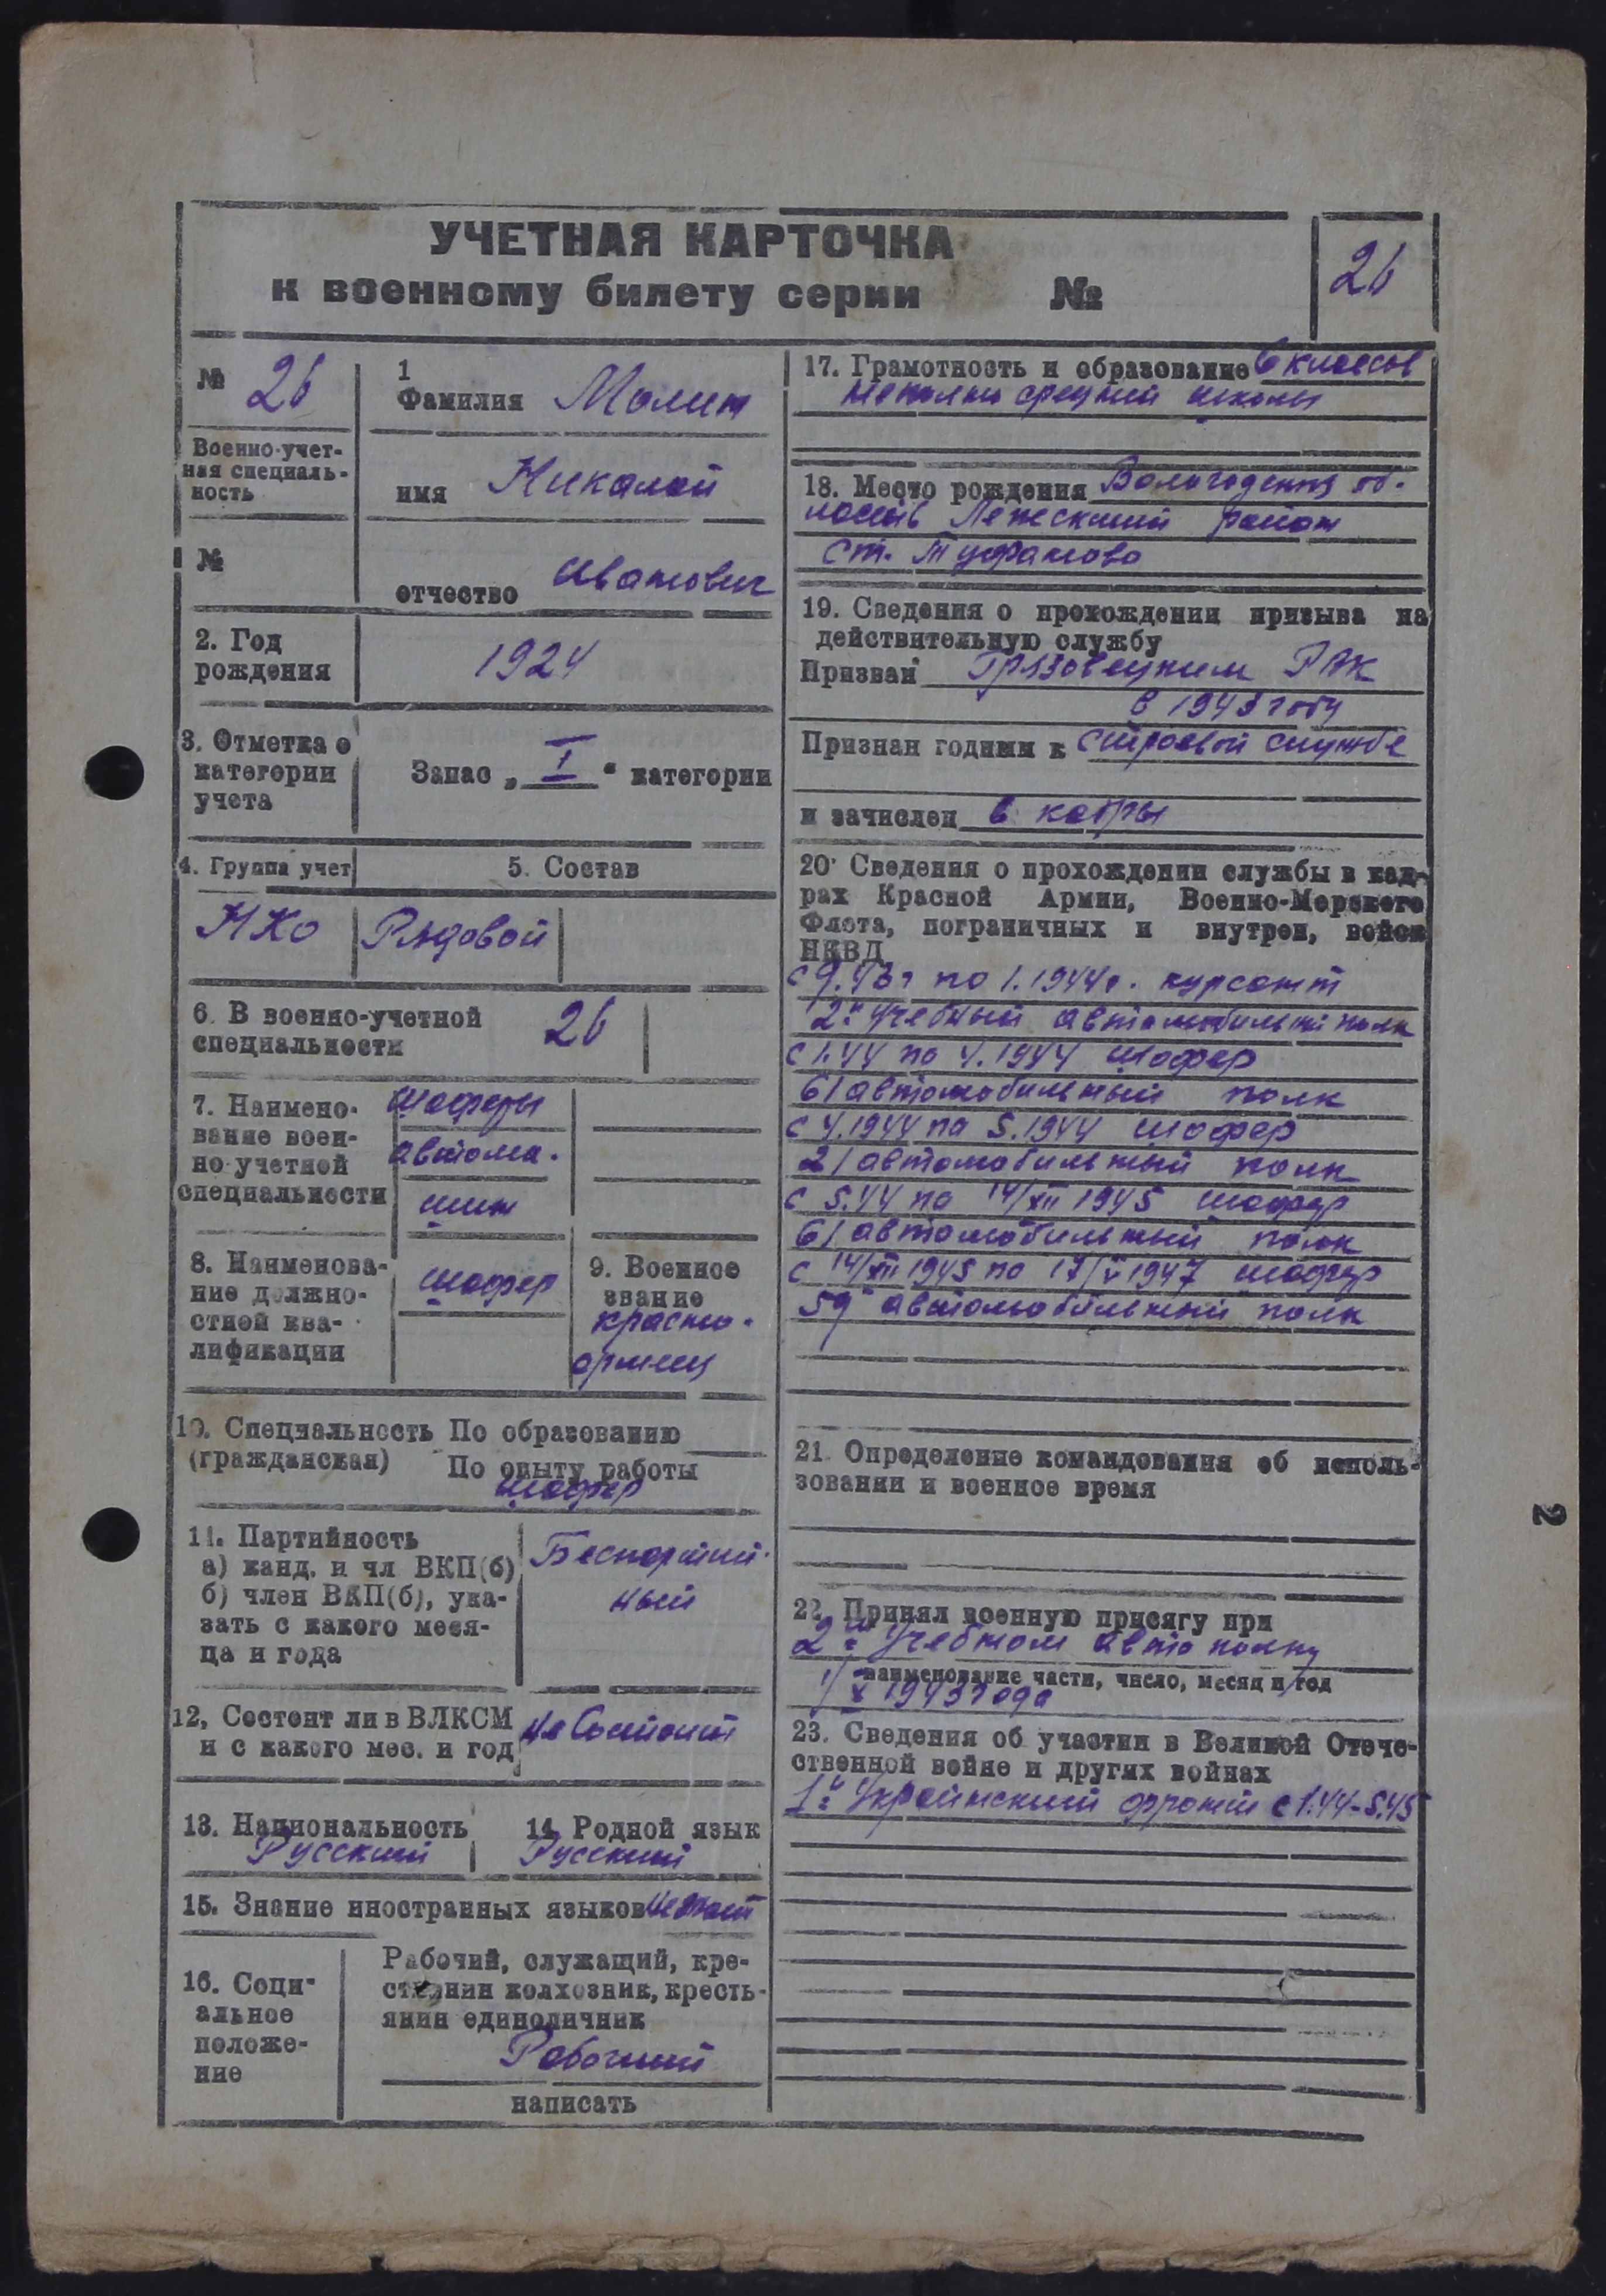 УЧЕТНАЯ КАРТОЧКА
к военному билету серии №
26
№ 26
Военно-учет-
ная специаль-
ность
№
1
Фамилия Молин
имя Николай
отчество Иванович
2. Год
рождения
1924
3. Отметка о
категории
учета
Запас „ I “ категории
4. Группа учет
5. Состав
НКО
Рядовой
6. В военно-учетной
специальности
26
7. Наимено-
вание воен-
но-учетной
специальности
шоферы
автома-
шин
8. Наименова-
ние должно-
стной ква-
лификации
шофер
9. Военное
звание
красно-
армеец
10. Специальность По образованию
(гражданская) По опыту работы
шофер
11. Партийность
а) канд. и чл ВКП(б)
б) член ВКП(б), ука-
зать с какого меся-
ца и года
Беспартий-
ный
12, Состоит ли в ВЛКСМ
и с какого мес. и год
не Состоит
13. Национальность
Русский
14. Родной язык
Русский
15. Знание иностранных языков не знает
16. Соци-
альное
положе-
ние
Рабочий, служащий, кре-
стьянин колхозник, кресть-
янин единоличник
Рабочий
написать
17. Грамотность и образование 6 классов
неполно средней школы
18. Место рождения Вологодская об-
ласть Лежский район
ст. Туфаново
19. Сведения о прохождении призыва на
действительную службу
Призван Грязовецким РВК
в 1943 году
Признан годным к строевой службе
и зачислен в кадры
20. Сведения о прохождении службы в кад-
рах Красной Армии, Военно-Морского
Флота, пограничных и внутрен, войск
НКВД
с 9.43г по 1.1944г. курсант
2й Учебный автомобильный полк
с 1.44 по 4.1944 шофер
61 автомобильный полк
с 4.1944 по 5.1944 шофер
21 автомобильный полк
с 5.44 по 14/XII 1945 шофер
61 автомобильный полк
с 14/XII 1945 по 17/V 1947 шофер
59й автомобильный полк
21. Определение командования об исполь-
зовании и военное время
22. Принял военную присягу при
2м Учебном авто полку
наименование части, число, месяц и год
1/X 1943 года
23. Сведения об участии в Великой Отече-
ственной войне и других войнах
1й Украинский фронт с 1.44-5.45
2